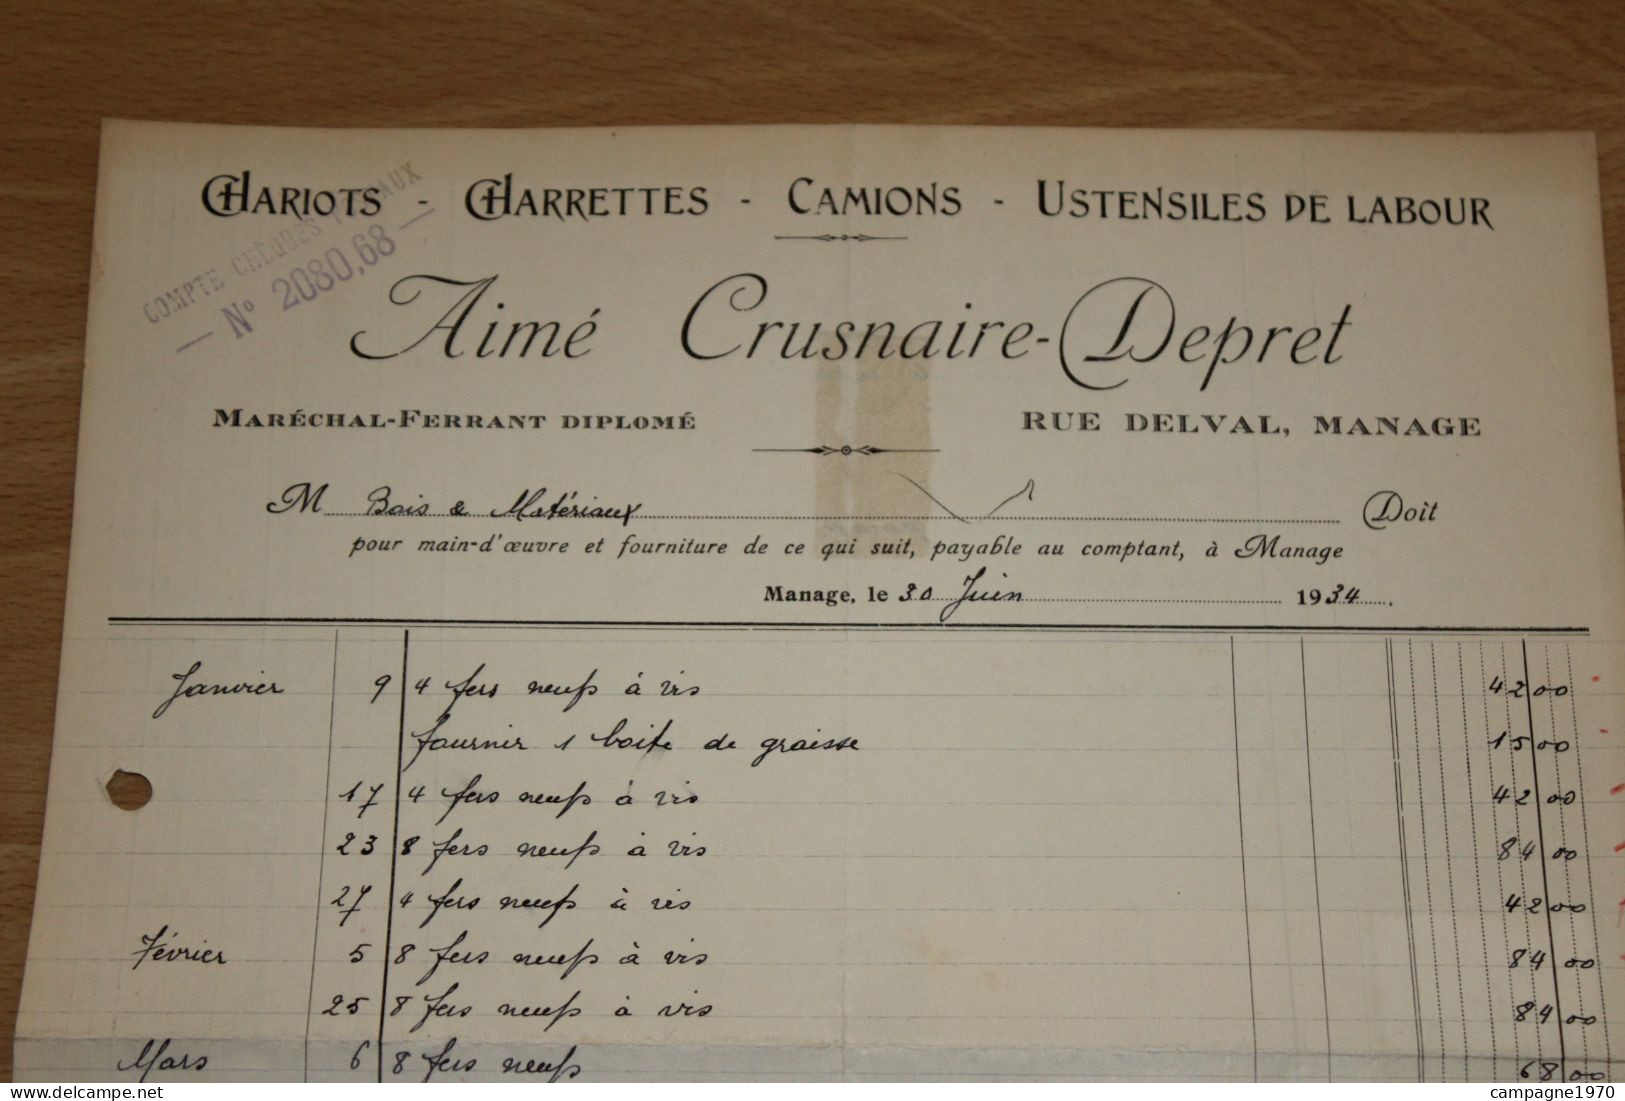 CHARIOTS - CHARRETTES - CAMIONS - USTENSILES DE LABOUR
COMPTE CHÈQUES POSTAUX
— N° 2080,68 —
Aimé Crusnaire-Depret
MARÉCHAL-FERRANT DIPLOMÉ
RUE DELVAL, MANAGE
M Bois & Matériaux Doit
pour main-d'œuvre et fourniture de ce qui suit, payable au comptant, à Manage
Manage, le 30 Juin 1934
Janvier 9 4 fers neufs à vis 42 00
fournir 1 boite de graisse 15 00
17 4 fers neufs à vis 42 00
23 8 fers neufs à vis 84 00
27 4 fers neufs à vis 42 00
Février 5 8 fers neufs à vis 84 00
25 8 fers neufs à vis 84 00
Mars 6 8 fers neufs 68 00
delcampe.net
campagne1970